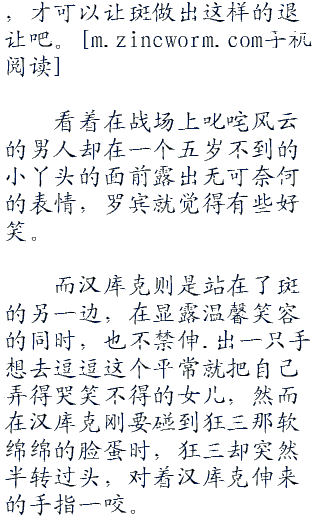 ，才可以让斑做出这样的退
让吧。[m.zincworm.com手机
阅读]
看着在战场上叱咤风云
的男人却在一个五岁不到的
小丫头的面前露出无可奈何
的表情，罗宾就觉得有些好
笑。
而汉库克则是站在了斑
的另一边，在显露温馨笑容
的同时，也不禁伸.出一只手
想去逗逗这个平常就把自己
弄得哭笑不得的女儿，然而
在汉库克刚要碰到狂三那软
绵绵的脸蛋时，狂三却突然
半转过头，对着汉库克伸来
的手指一咬。